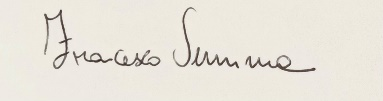 Francesco Summa